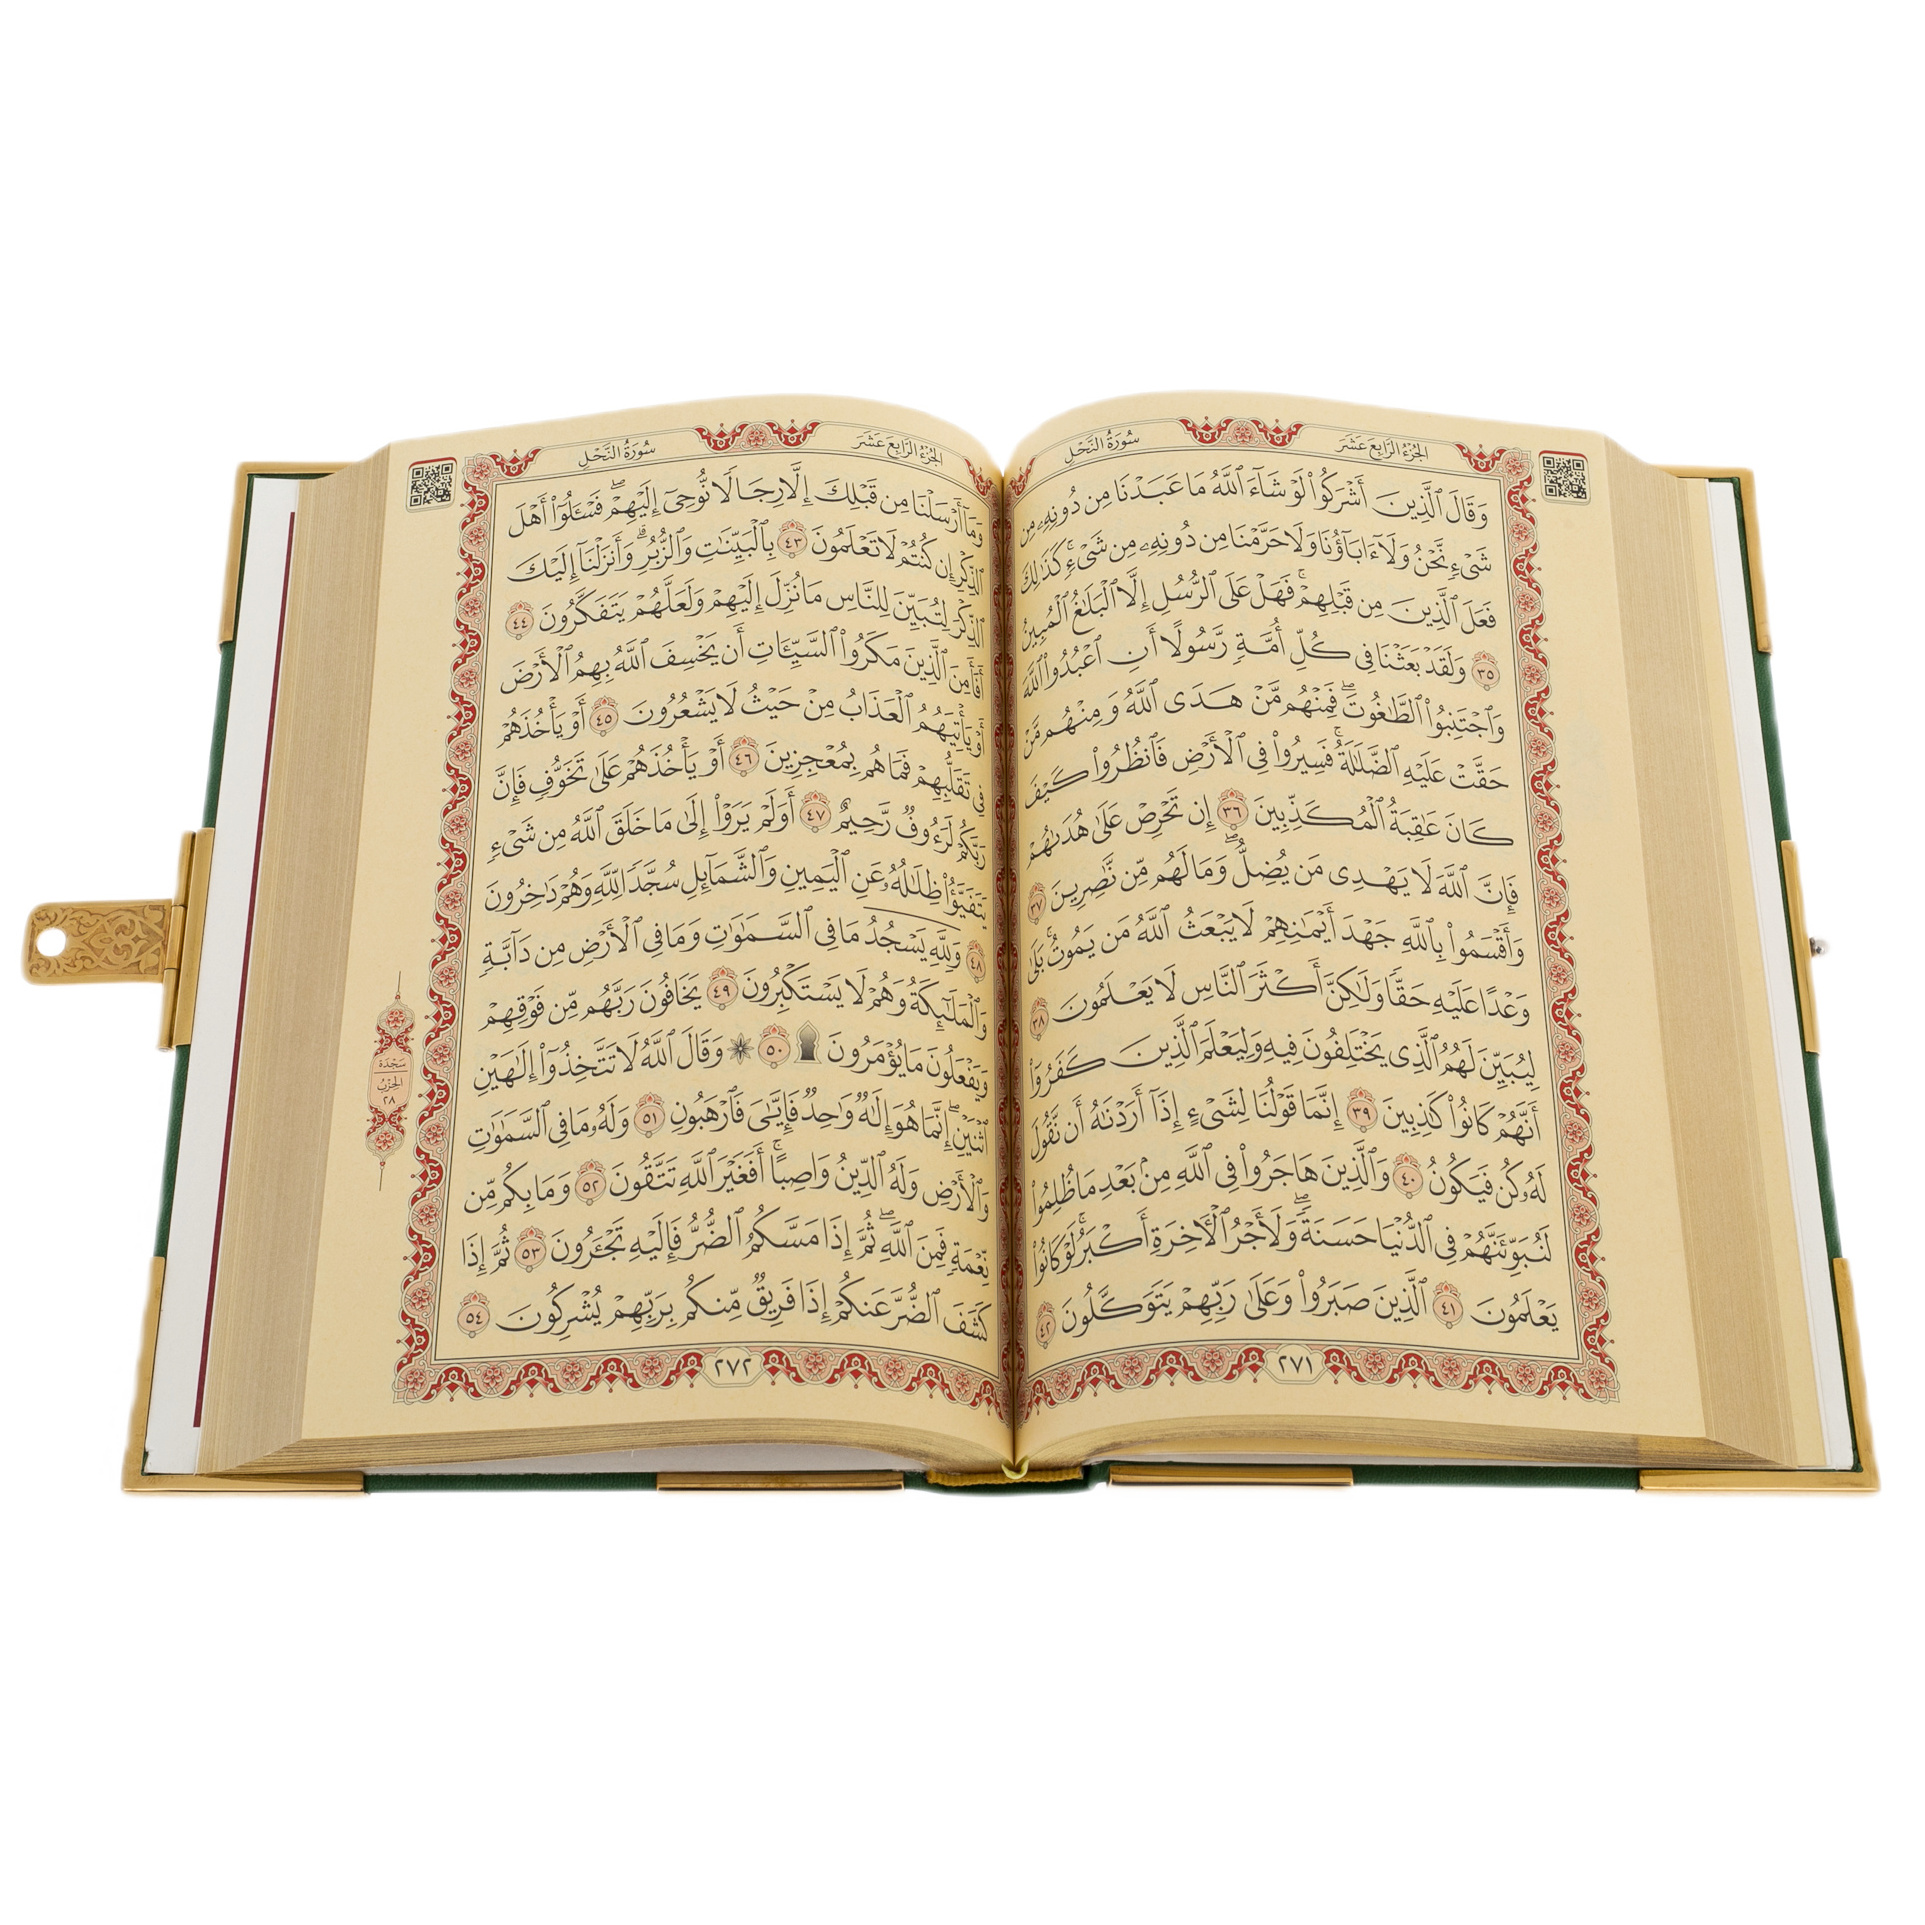 سُورَةُ النَّحْلِ
الجُزْءُ الرَّابِعَ عَشَرَ
وَقَالَ ٱلَّذِينَ أَشْرَكُوا۟ لَوْ شَآءَ ٱللَّهُ مَا عَبَدْنَا مِن دُونِهِۦ مِن
شَىْءٍۢ نَّحْنُ وَلَآ ءَابَآؤُنَا وَلَا حَرَّمْنَا مِن دُونِهِۦ مِن شَىْءٍۢ ۚ كَذَٰلِكَ
فَعَلَ ٱلَّذِينَ مِن قَبْلِهِمْ ۚ فَهَلْ عَلَى ٱلرُّسُلِ إِلَّا ٱلْبَلَٰغُ ٱلْمُبِينُ
٣٥ وَلَقَدْ بَعَثْنَا فِى كُلِّ أُمَّةٍۢ رَّسُولًا أَنِ ٱعْبُدُوا۟ ٱللَّهَ
وَٱجْتَنِبُوا۟ ٱلطَّٰغُوتَ ۖ فَمِنْهُم مَّنْ هَدَى ٱللَّهُ وَمِنْهُم مَّنْ
حَقَّتْ عَلَيْهِ ٱلضَّلَٰلَةُ ۚ فَسِيرُوا۟ فِى ٱلْأَرْضِ فَٱنظُرُوا۟ كَيْفَ
كَانَ عَٰقِبَةُ ٱلْمُكَذِّبِينَ ٣٦ إِن تَحْرِصْ عَلَىٰ هُدَىٰهُمْ
فَإِنَّ ٱللَّهَ لَا يَهْدِى مَن يُضِلُّ ۖ وَمَا لَهُم مِّن نَّٰصِرِينَ ٣٧
وَأَقْسَمُوا۟ بِٱللَّهِ جَهْدَ أَيْمَٰنِهِمْ لَا يَبْعَثُ ٱللَّهُ مَن يَمُوتُ ۚ بَلَىٰ
وَعْدًا عَلَيْهِ حَقًّۭا وَلَٰكِنَّ أَكْثَرَ ٱلنَّاسِ لَا يَعْلَمُونَ ٣٨
لِيُبَيِّنَ لَهُمُ ٱلَّذِى يَخْتَلِفُونَ فِيهِ وَلِيَعْلَمَ ٱلَّذِينَ كَفَرُوٓا۟
أَنَّهُمْ كَانُوا۟ كَٰذِبِينَ ٣٩ إِنَّمَا قَوْلُنَا لِشَىْءٍ إِذَآ أَرَدْنَٰهُ أَن نَّقُولَ
لَهُۥ كُن فَيَكُونُ ٤٠ وَٱلَّذِينَ هَاجَرُوا۟ فِى ٱللَّهِ مِنۢ بَعْدِ مَا ظُلِمُوا۟
لَنُبَوِّئَنَّهُمْ فِى ٱلدُّنْيَا حَسَنَةًۭ ۖ وَلَأَجْرُ ٱلْءَاخِرَةِ أَكْبَرُ ۚ لَوْ كَانُوا۟
يَعْلَمُونَ ٤١ ٱلَّذِينَ صَبَرُوا۟ وَعَلَىٰ رَبِّهِمْ يَتَوَكَّلُونَ ٤٢
٢٧١
سُورَةُ النَّحْلِ
الجُزْءُ الرَّابِعَ عَشَرَ
وَمَآ أَرْسَلْنَا مِن قَبْلِكَ إِلَّا رِجَالًۭا نُّوحِىٓ إِلَيْهِمْ ۖ فَسْـَٔلُوٓا۟ أَهْلَ
ٱلذِّكْرِ إِن كُنتُمْ لَا تَعْلَمُونَ ٤٣ بِٱلْبَيِّنَٰتِ وَٱلزُّبُرِ ۗ وَأَنزَلْنَآ إِلَيْكَ
ٱلذِّكْرَ لِتُبَيِّنَ لِلنَّاسِ مَا نُزِّلَ إِلَيْهِمْ وَلَعَلَّهُمْ يَتَفَكَّرُونَ ٤٤
أَفَأَمِنَ ٱلَّذِينَ مَكَرُوا۟ ٱلسَّيِّـَٔاتِ أَن يَخْسِفَ ٱللَّهُ بِهِمُ ٱلْأَرْضَ
أَوْ يَأْتِيَهُمُ ٱلْعَذَابُ مِنْ حَيْثُ لَا يَشْعُرُونَ ٤٥ أَوْ يَأْخُذَهُمْ
فِى تَقَلُّبِهِمْ فَمَا هُم بِمُعْجِزِينَ ٤٦ أَوْ يَأْخُذَهُمْ عَلَىٰ تَخَوُّفٍۢ فَإِنَّ
رَبَّكُمْ لَرَءُوفٌۭ رَّحِيمٌ ٤٧ أَوَلَمْ يَرَوْا۟ إِلَىٰ مَا خَلَقَ ٱللَّهُ مِن شَىْءٍۢ
يَتَفَيَّؤُا۟ ظِلَٰلُهُۥ عَنِ ٱلْيَمِينِ وَٱلشَّمَآئِلِ سُجَّدًۭا لِّلَّهِ وَهُمْ دَٰخِرُونَ
٤٨ وَلِلَّهِ يَسْجُدُ مَا فِى ٱلسَّمَٰوَٰتِ وَمَا فِى ٱلْأَرْضِ مِن دَآبَّةٍۢ
وَٱلْمَلَٰٓئِكَةُ وَهُمْ لَا يَسْتَكْبِرُونَ ٤٩ يَخَافُونَ رَبَّهُم مِّن فَوْقِهِمْ
وَيَفْعَلُونَ مَا يُؤْمَرُونَ ۩ ٥٠ وَقَالَ ٱللَّهُ لَا تَتَّخِذُوٓا۟ إِلَٰهَيْنِ
ٱثْنَيْنِ ۖ إِنَّمَا هُوَ إِلَٰهٌۭ وَٰحِدٌۭ ۖ فَإِيَّٰىَ فَٱرْهَبُونِ ٥١ وَلَهُۥ مَا فِى ٱلسَّمَٰوَٰتِ
وَٱلْأَرْضِ وَلَهُ ٱلدِّينُ وَاصِبًا ۚ أَفَغَيْرَ ٱللَّهِ تَتَّقُونَ ٥٢ وَمَا بِكُم مِّن
نِّعْمَةٍۢ فَمِنَ ٱللَّهِ ۖ ثُمَّ إِذَا مَسَّكُمُ ٱلضُّرُّ فَإِلَيْهِ تَجْـَٔرُونَ ٥٣ ثُمَّ إِذَا
كَشَفَ ٱلضُّرَّ عَنكُمْ إِذَا فَرِيقٌۭ مِّنكُم بِرَبِّهِمْ يُشْرِكُونَ ٥٤
سَجْدَة
الحِزْبُ
٢٨
٢٧٢